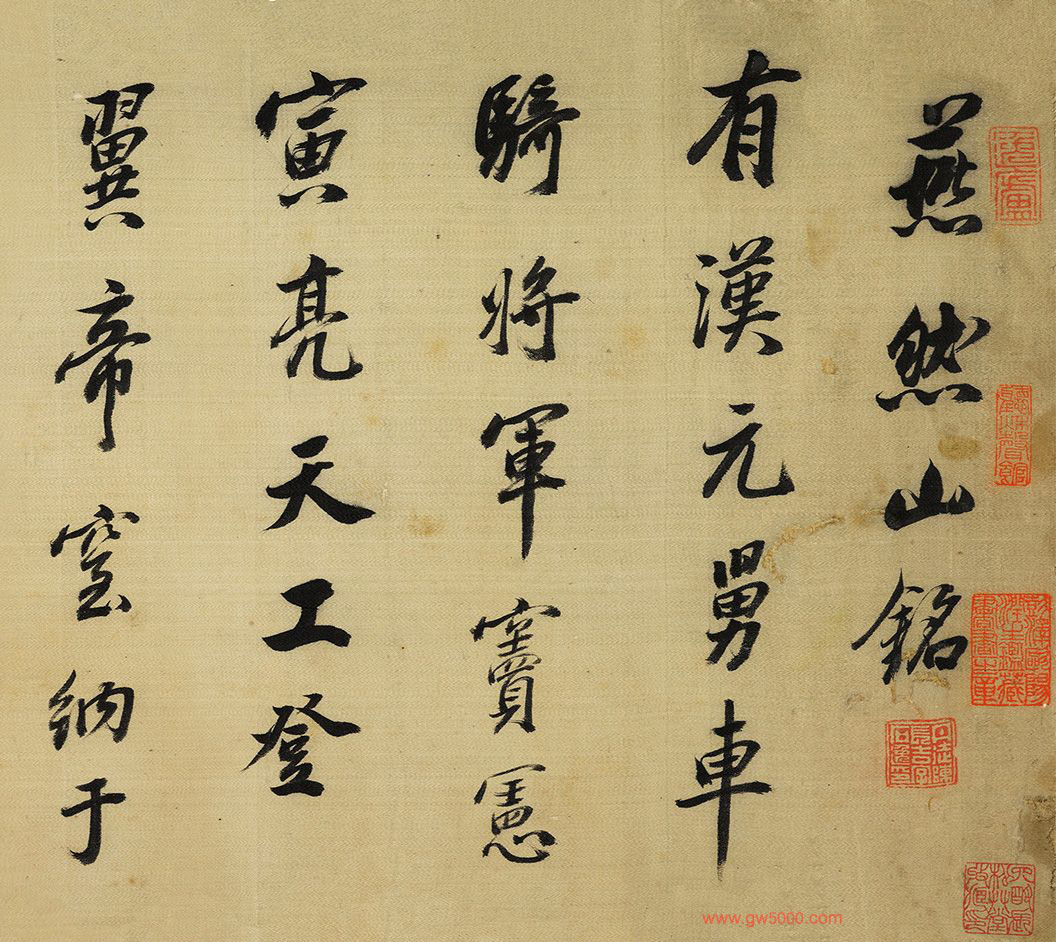 燕然山銘
有漢元舅車
騎將軍竇憲
寅亮天工登
翼帝室納于
www.gw5000.com